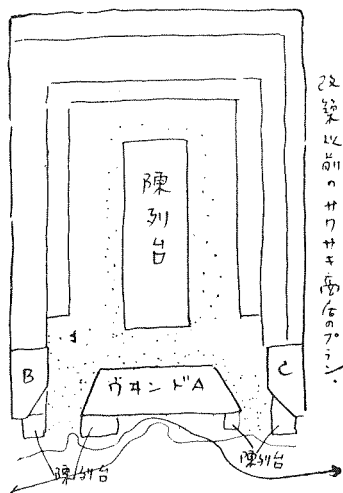 改築以前のサワサキ商店のプラン.
陳列台
B
ヴヰンドA
C
陳列台
陳列台